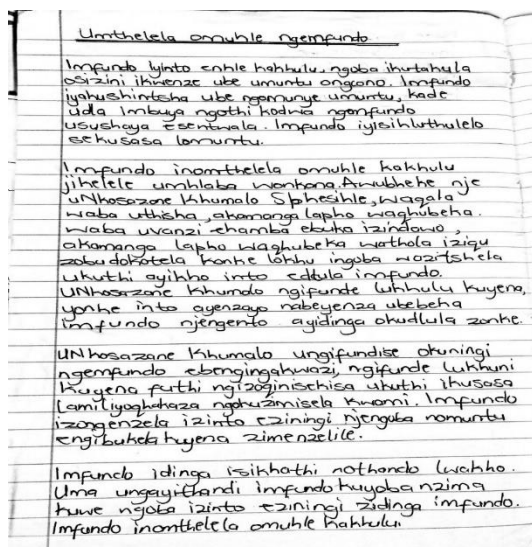 Umthelela omuhle ngemfundo
Imfundo iyinto enhle kahhulu, ngoba ikutahula
osizini ikwenze ube umuntu ongcono. Imfundo
iyakushintsha ube ngomunye umuntu, kade
udla Imbuya ngothi kodwa ngemfundo
usushaya esentwala. Imfundo iyisihluthulelo
sekusasa lomuntu.
Imfundo inomthelela omuhle kakhulu
jihelele umhlaba wonkana. Awubheke nje
uNkosazane Khumalo Sphesihle, waqala
waba uthisha, akamanga lapho waqhubeka.
waba uvanzi ehamba ebuka izindawo,
akamanga lapho waqhubeka wathola iziqu
zobudokotela konke lokhu ingoba wazitshela
ukuthi ayikho into edlula imfundo.
UNkosazane Khumalo ngifunde lukhulu kuyena,
yonke into ayenzayo nabeyenza ubebeka
imfundo njengento ayidinga okudlula zonke.
UNkosazane Khumalo ungifundise okuningi
ngemfundo ebengingakwazi, ngifunde lukhuni
kuyena futhi ngizoginisekisa ukuthi ikusasa
lami liyoghakaza ngokuzimisela kwami. Imfundo
izongenzela izinto eziningi njengoba nomuntu
engibukela kuyena zimenzelile.
Imfundo idinga isikhathi nothando lwakho.
Uma ungayithandi imfundo kuyoba nzima
kuwe ngoba izinto eziningi zidinga imfundo.
Imfundo inomthelela omuhle kahhulu.